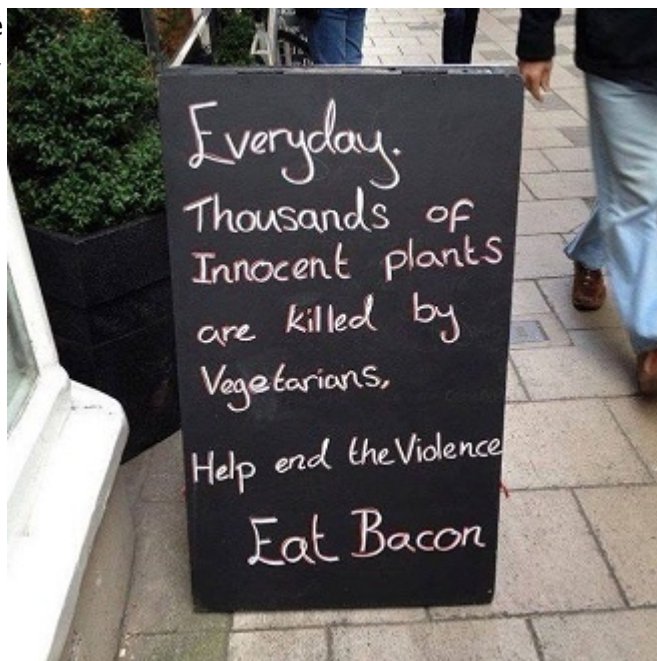 Everyday.
Thousands of
Innocent plants
are killed by
Vegetarians,
Help end the Violence
Eat Bacon